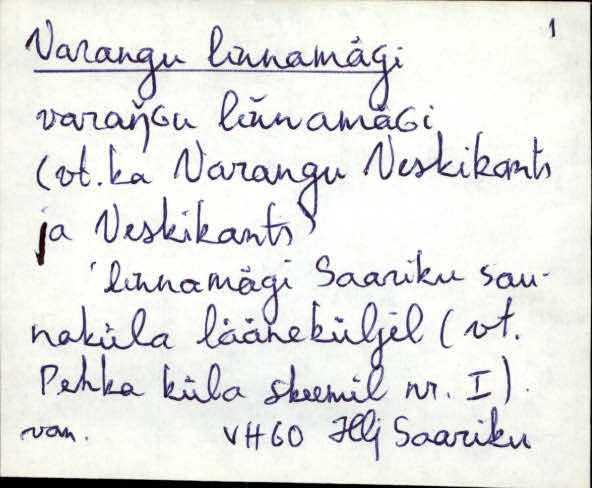 1
Varangu linnamägi
varaŋGu liǹnamäGi
(vt. ka Varangu Veskikants
ja Veskikants)
linnamägi Saariku sau-
naküla lääneküljel (vt.
Pehka küla skeemil nr. I).
van. VH60 Hlj Saariku